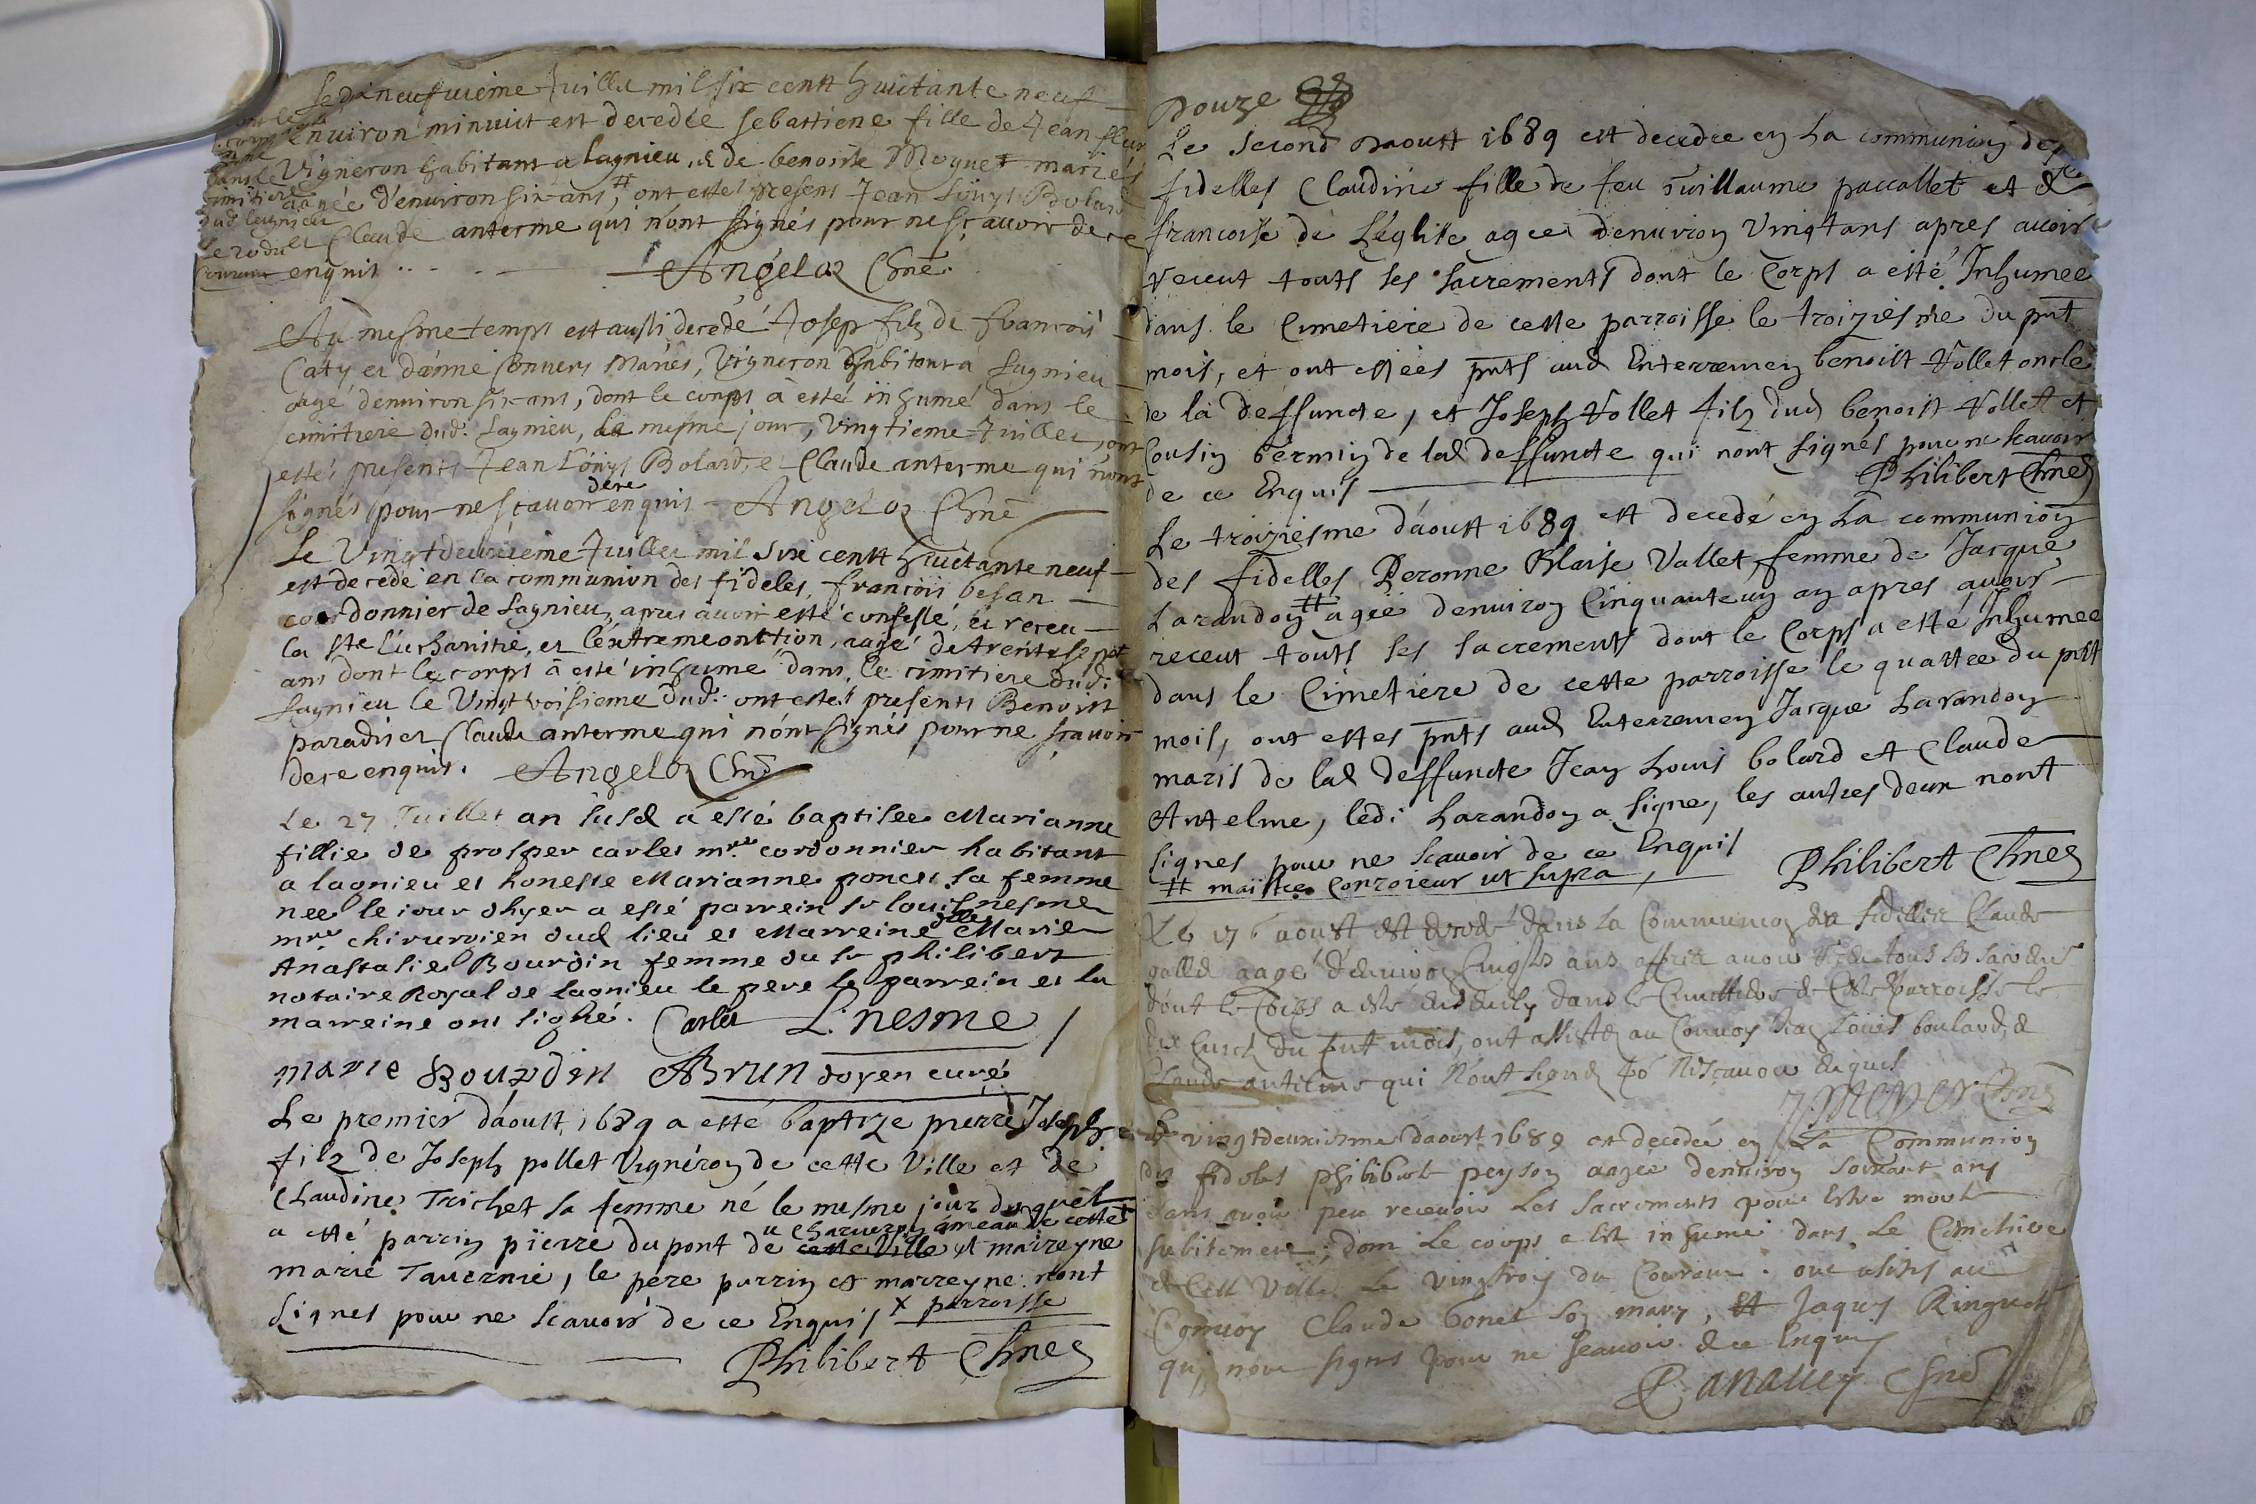 Le dixneufuieme Juillet mil six centt huictante neuf
enuiron minuict est decedée sebastiene fille de Jean
Vigneron habitant a lagnieu, & de benoiste Moynet mariés
aagée d'enuiron six ans, # ont estés presens Jean Loüys Bolard
et Claude anterme qui n'ont signés pour ne sçauoir de ce
enquis
Angeloz Chne
dans le
cimitiere
dud. Lagnieu
Au mesme temps est aussi decedé Josep filz de francois
Caty et d'anne Conuers mariés, Vigneron habitant a Lagnieu
agé d'enuiron six ans, dont le corps à esté inhumé dans le
cimitiere dud. Lagnieu, le mesme jour, vingtieme Juillet, ont
estés presents Jean Loüys Bolard, et Claude anterme qui n'ont
signés pour ne sçauoir de ce enquis Angeloz Chne
Le Vingtdeuxieme Juillet mil six centt huictante neuf
est decedé en la communion des fideles, francois besan
cordonnier de Lagnieu, apres auoir esté confessé, et receu
la Ste Eucharistie, et l'extremeonction, aagé de trente sept
ans dont le corps à esté inhumé dans le cimitiere dud.
Lagnieu le Vingttroisieme dud. ont estés presents Benoist
paradis et Claude anterme qui n'ont signés pour ne sçauoir
de ce enquis. Angeloz Chne
Le 27 Juillet an susd a esté baptisee Marianne
fillie de prosper carles mre cordonnier habitant
a lagnieu et honeste Marianne poncet sa femme
nee le iour dhyer a esté parrein sr louis nesme
mre chirurgien dud lieu et Marreine dlle Marie
Anastasie Bourdin femme du sr philibert
notaire Royal de lagnieu le pere le parrein et la
marreine ont signé. Carles L. nesme
marie Bourdin ABrun doyen curé
Le premier d'aoust 1689 a esté baptize pierre Joseph
filz de Joseph pollet Vigneron de cette Ville et de
Claudine Trichet sa femme né le mesme jour duquel
a esté parrin pierre du pont de cette Ville et maireyne
marie Tauernié, le pere parrin et marreyne nont
signes pour ne scauoir de ce Enquis x parroisse
Philibert Chne
Douze
Le second Daoust 1689 est decedee en La communion des
fidelles Claudine fille de feu Guillaume paccallet et de
francoise de L'eglise agee denuiron Vingtans apres auoir
receut touts les sacrements dont le Corps a esté Inhumee
dans le Cimetiere de cette parroisse le troiziesme du pnt
mois, et ont estées pnts aud Enterremen benoist Vollet oncle
de la deffuncte, et Joseph Vollet filz dud benoist Vollet et
Cousin Germin de lad deffuncte qui nont signés pour ne scauoir
de ce Enquis Philibert Chne
Le troiziesme d'aoust 1689 est decedé en La communion
des fidelles Peronne Blaise Vallet femme de Jacque
Larandon # agée denuiron Cinquanteun an apres auoir
receut touts les sacrements dont le Corps a esté Inhumee
dans le Cimetiere de cette parroisse le quattre du pnt
mois, ont estes pnts aud Enterremen Jacque Larandon
maris de lad deffuncte Jean Louis bolard et Claude
Antelme, ledi Larandon a signe, les autres deux nont
signes pour ne scauoir de ce Enquis
# maistre Conroieur ut supra, Philibert Chne
Le 17e aoust est decedé dans la Communion des fidelles Claude
aagé d'enuiron ans apres auoir tous les
dont le Corps a esté dans le Cimettiere de Cette Parroisse le
du pnt mois, ont assisté au Conuoy Jean Louis boulard, &
Claude antelme qui n'ont signé enquis
Le vingtdeuxiesme daoust 1689 est decedee en La Communion
des fideles philiberte peyson aagee denuiron soixant ans
sans auoir peu receuoir Les sacrements pour Estre morte
subitement, dont Le corps a Est inhumé dans Le Cimetiere
de Cette Ville Le vingtrois du Courant. ont asistes au
Conuoy Claude bonet son mary, et Jaques Ringuet
qui nont signes pour ne scauoir de ce Enquis